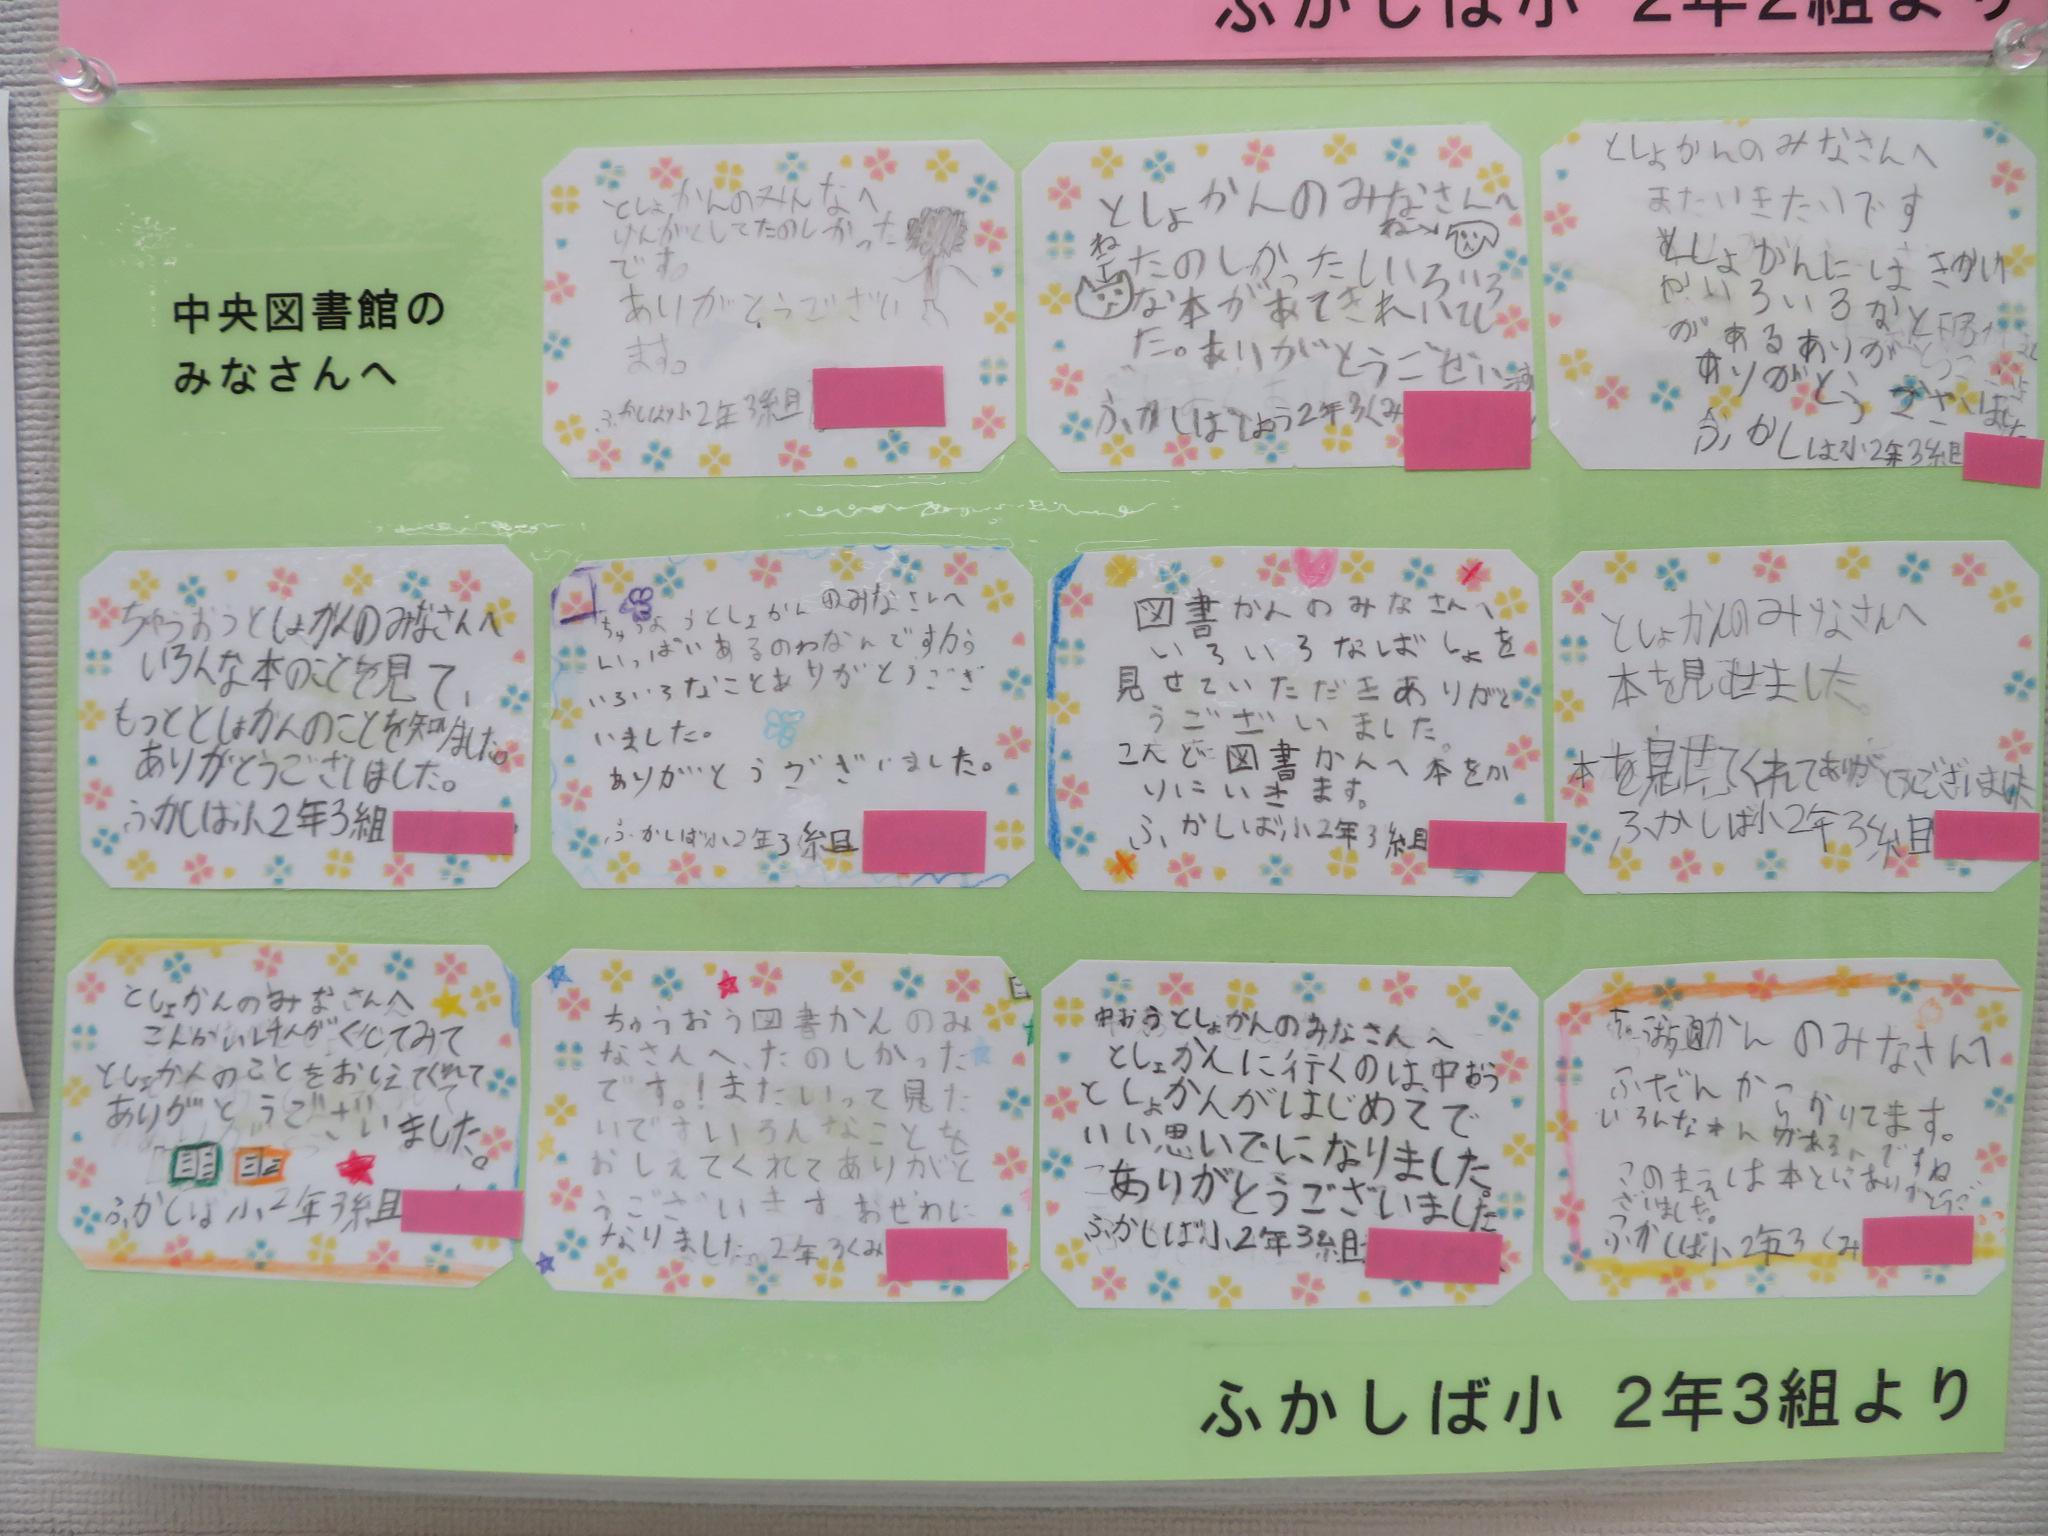 ふかしば小 2年2組より
中央図書館の
みなさんへ
としょかんのみんなへ
けんがくしてたのしかった
です。
ありがとうござい
ます。
ふかしば小2年3組
としょかんのみなさんへ
ねこ
たのしかったしいろいろ
な本があてきれいでし
た。ありがとうごぜい
ふかしばしょう2年3くみ
としょかんのみなさんへ
またいきたいです
としょかんには
いろいろな
があるありが
ありがとう
ふかしば小2年3組
ちゅうおうとしょかんのみなさんへ
いろんな本のことを見て、
もっととしょかんのことを知れました。
ありがとうございました。
ふかしば小2年3組
としょかんのみなさんへ
いっぱいあるのわなんですから
いろいろなことありがとうござ
いました。
ありがとうございました。
ふかしば小2年3組
図書かんのみなさんへ
いろいろなばしょを
見せていただきありがと
うございました。
こんど図書かんへ本をか
りにいきます。
ふかしば小2年3組
としょかんのみなさんへ
本を見せました。
本を見せてくれてありがとうございました
ふかしば小2年3組
としょかんのみなさんへ
こんかいけんがくしてみて
としょかんのことをおしえてくれて
ありがとうございました。
ふかしば小2年3組
ちゅうおう図書かんのみ
なさんへ、たのしかった
です。!またいって見た
いですいろんなことを
おしえてくれてありがと
うございます おせわに
なりました。2年3くみ
中おうとしょかんのみなさんへ
としょかんに行くのは、中おう
としょかんがはじめてで
いい思いでになりました。
ありがとうございました
ふかしば小2年3組
かんのみなさんへ
ふだんからかりてます。
いろんなほんがあるんですね
このまえは本とにありがとうご
ざいました。
ふかしば小2年3くみ
ふかしば小 2年3組より